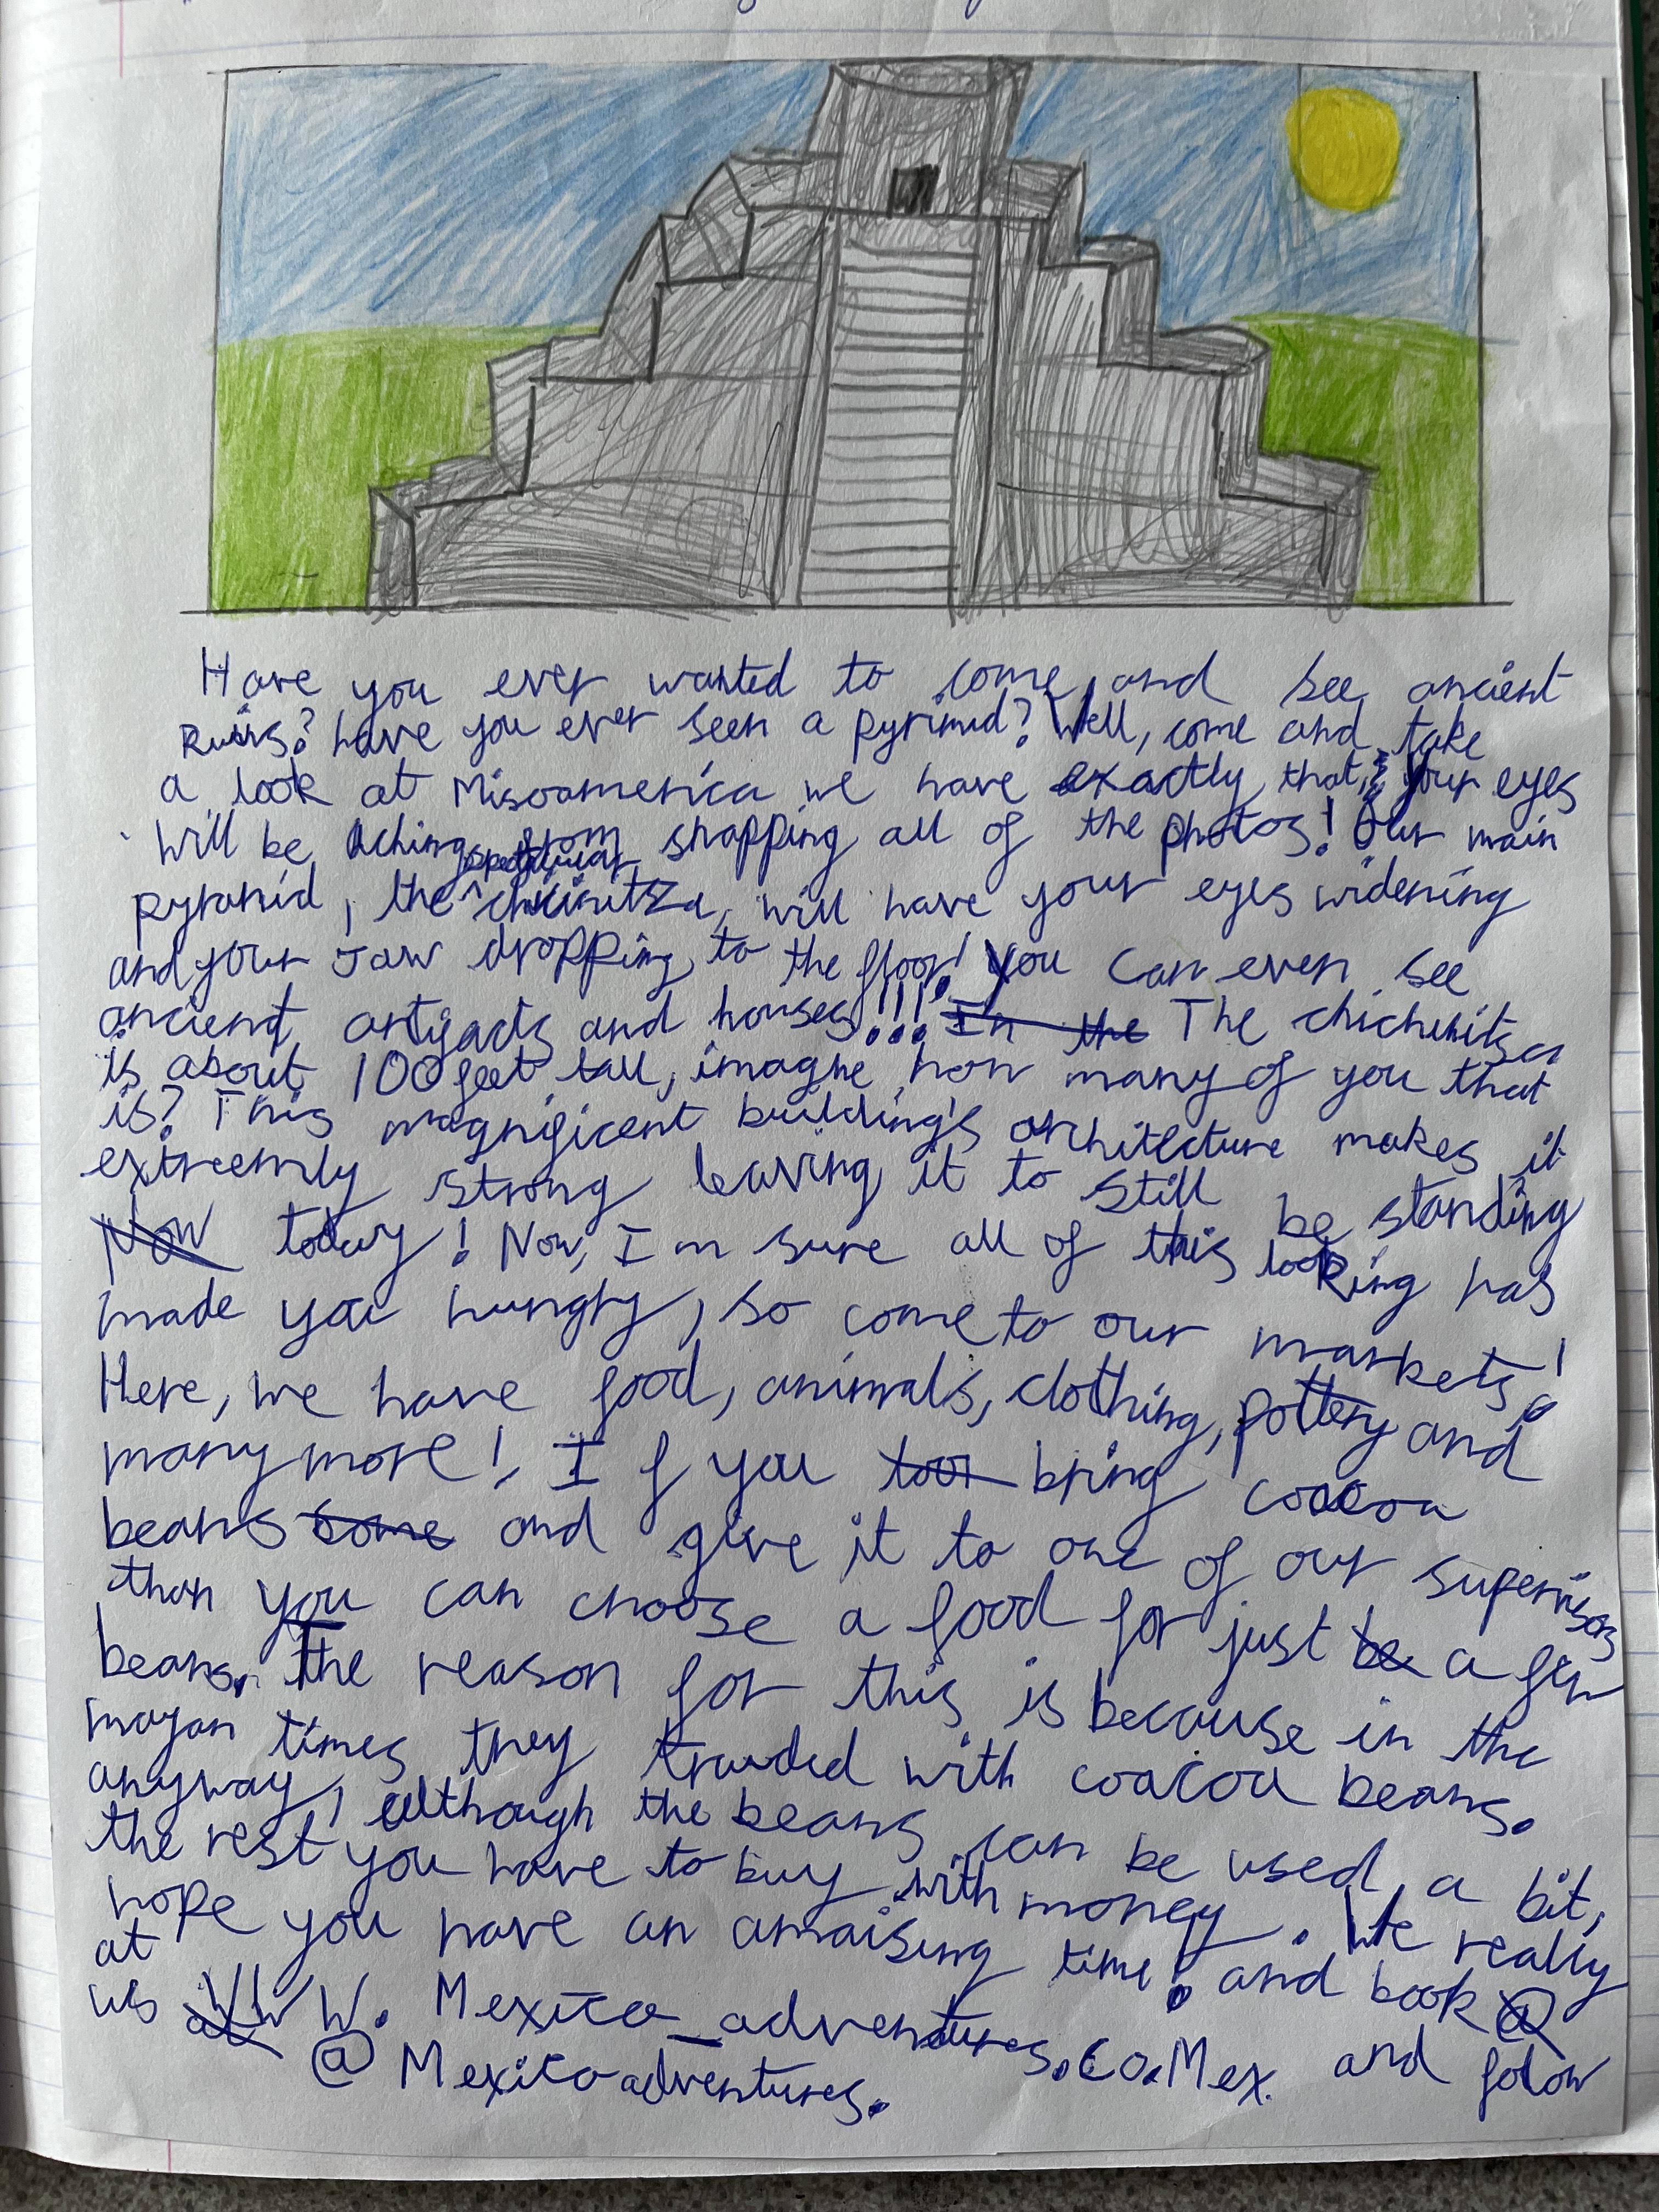 Have you ever wanted to come and see ancient
Ruins? have you ever seen a pyrimid? Well, come and take
a look at Misoamerica we have exactly that, your eyes
will be Aching from snapping all of the photos! Our main
pyramid, the spectacular chichitza, will have your eyes widening
and your Jaw dropping to the floor! You can even see
ancient artifacts and houses!!! In the The chichenitsa
is about 100 feet tall, imagne how many of you that
is? This magnificent building's architecture makes it
extreemly strong leaving it to still be standing
Now today! Now, I'm sure all of this looking has
made you hungry, so come to our markets!
Here, we have food, animals, clothing, pottery and
many more! If you bring cocoa
beans some and give it to one of our supervisors
than you can choose a food for just be a few
beans. The reason for this is because in the
mayan times they traded with coacoa beans.
anyway, although the beans can be used a bit,
the rest you have to buy with money. We really
hope you have an amaising time! and book @
at WWW. Mexico_adventures.co.Mex. and folow
us at @Mexicoadventures.